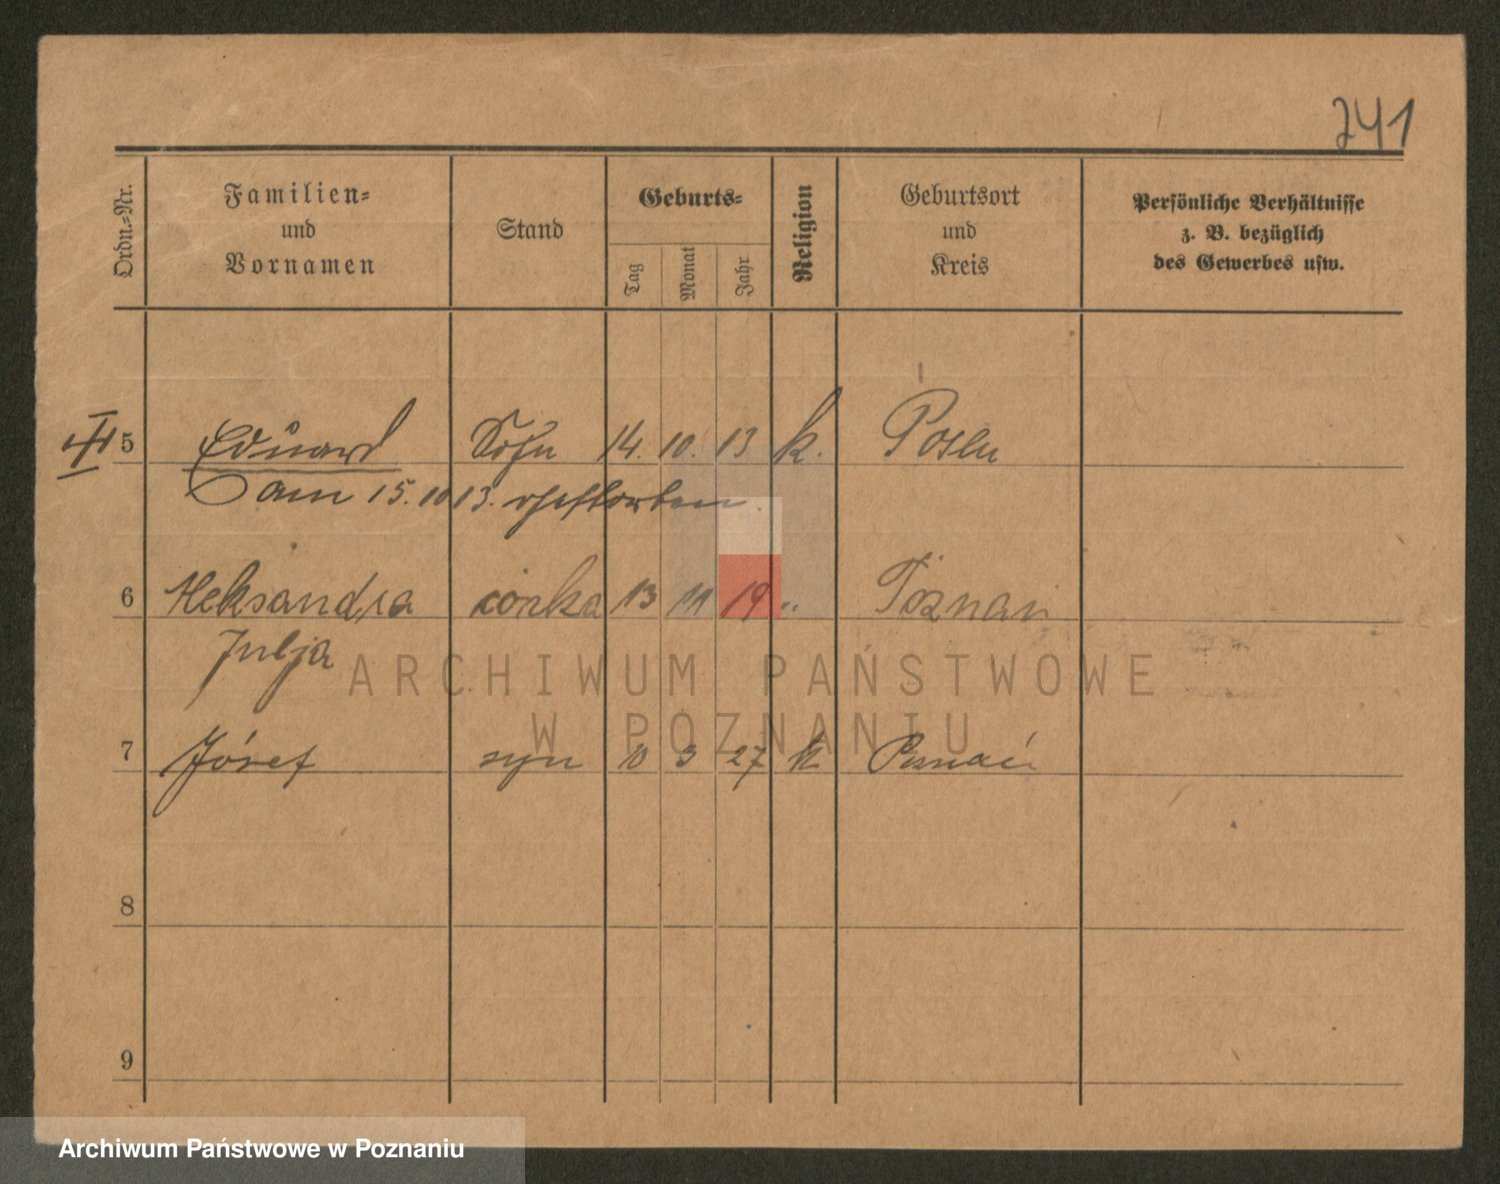 241
Ordn.-Nr.
Familien-
und
Vornamen
Stand
Geburts-
Tag
Monat
Jahr
Religion
Geburtsort
und
Kreis
Persönliche Verhältnisse
z. B. bezüglich
des Gewerbes usw.
5 Eduard Sohn 14. 10. 13 k. Posen
am 15. 10 13. verstorben.
6 Aleksandra córka 13 11 19 „ Poznań
Julja
ARCHIWUM PAŃSTWOWE
W POZNANIU
7 Józef syn 10 3 27 k Poznań
8
9
Archiwum Państwowe w Poznaniu